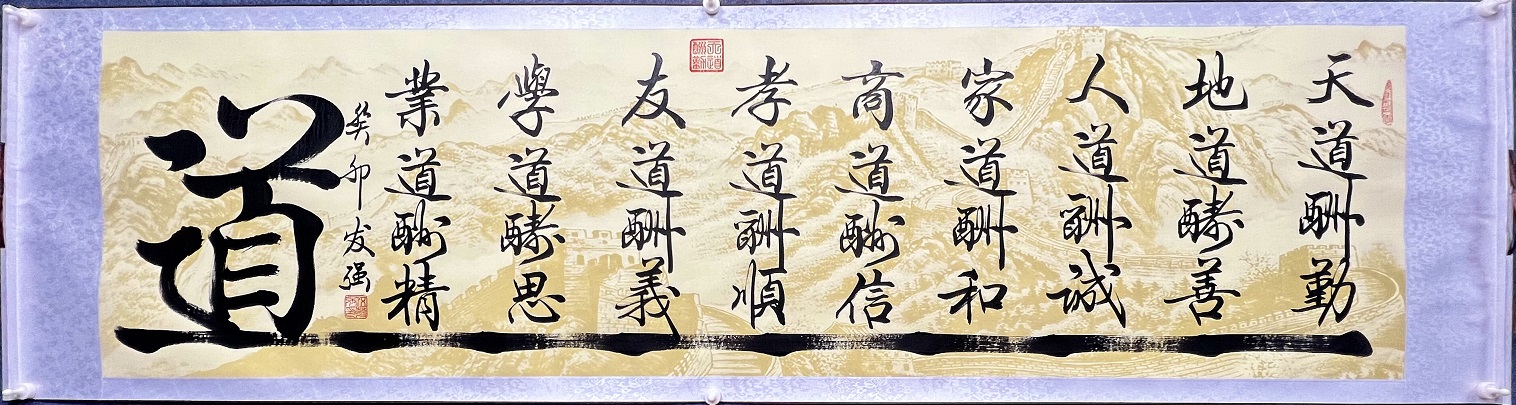 天道酬勤
地道酬善
人道酬誠
家道酬和
商道酬信
孝道酬順
友道酬義
學道酬思
業道酬精
癸卯 发强
道